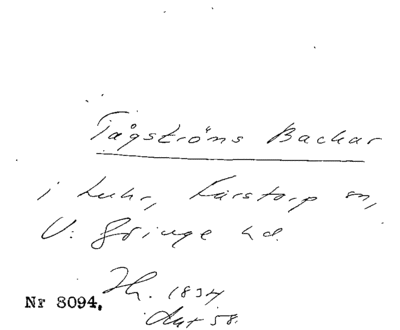 Tågströms Backar
i Luhr, Färstorp sn,
V: Göinge hd.
Hh. 1834
Akt 58.
Nr 8094.